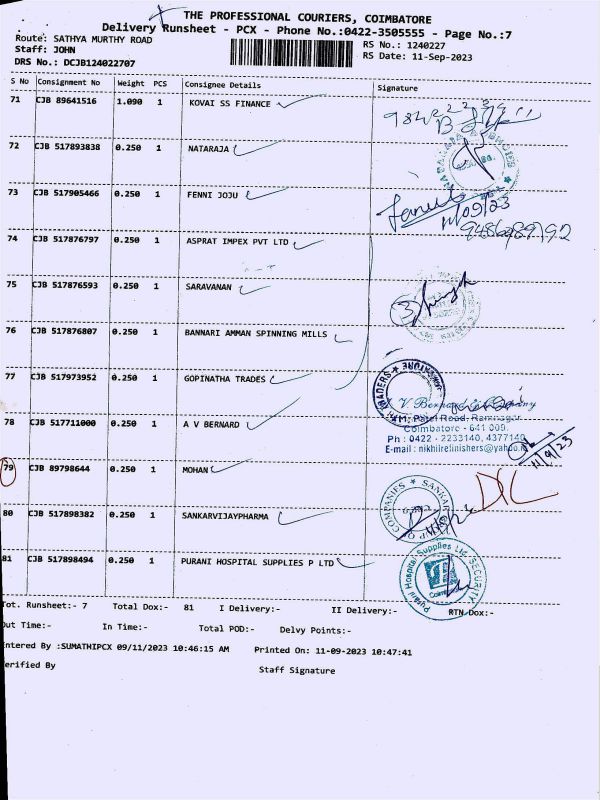 THE PROFESSIONAL COURIERS, COIMBATORE
Delivery Runsheet - PCX - Phone No.:0422-3505555 - Page No.:7
Route: SATHYA MURTHY ROAD
RS No.: 1240227
Staff: JOHN
RS Date: 11-Sep-2023
DRS No.: DCJB124022707
S No Consignment No Weight PCS Consignee Details Signature
71 CJB 89641516 1.090 1 KOVAI SS FINANCE
72 CJB 517893838 0.250 1 NATARAJA
73 CJB 517905466 0.250 1 FENNI JOJU
11/09/23
74 CJB 517876797 0.250 1 ASPRAT IMPEX PVT LTD
75 CJB 517876593 0.250 1 SARAVANAN
3
76 CJB 517876807 0.250 1 BANNARI AMMAN SPINNING MILLS
77 CJB 517973952 0.250 1 GOPINATHA TRADES
TRADERS
V Bernard & Company
Patel Road, Ramnagar
78 CJB 517711000 0.250 1 A V BERNARD
Coimbatore - 641 009.
Ph : 0422 - 2233140, 4377140
E-mail : nikhilrefinishers@yahoo.in
11/9/23
79 CJB 89798644 0.250 1 MOHAN
80 CJB 517898382 0.250 1 SANKARVIJAYPHARMA
SANKAR GROUP OF COMPANIES
81 CJB 517898494 0.250 1 PURANI HOSPITAL SUPPLIES P LTD
Purani Hospital Supplies Ltd. SECURITY
Tot. Runsheet:- 7 Total Dox:- 81 I Delivery:- II Delivery:- RTN Dox:-
Out Time:- In Time:- Total POD:- Delvy Points:-
Entered By :SUMATHIPCX 09/11/2023 10:46:15 AM Printed On: 11-09-2023 10:47:41
Verified By Staff Signature